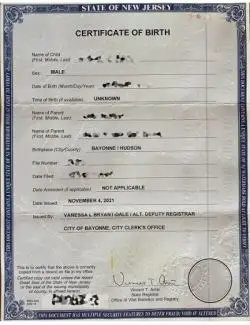 STATE OF NEW JERSEY
CERTIFICATE OF BIRTH
Name of Child
(First, Middle, Last)
Sex: MALE
Date of Birth (Month/Day/Year)
Time of Birth (if available): UNKNOWN
Name of Parent
(First, Middle, Last)
Name of Parent
(First, Middle, Last)
Birthplace (City/County): BAYONNE / HUDSON
File Number
Date Filed
Date Amended (if applicable) NOT APPLICABLE
Date Issued: NOVEMBER 4, 2021
Issued By: VANESSA L BRYANT-DALE / ALT. DEPUTY REGISTRAR
CITY OF BAYONNE, CITY CLERK'S OFFICE
This is to certify that the above is correctly
copied from a record on file in my office.
Certified copy not valid unless the raised
Great Seal of the State of New Jersey
or the seal of the issuing municipality
or county, is affixed hereon.
Vincent T. Arrisi
State Registrar
Office of Vital Statistics and Registry
THIS DOCUMENT HAS MULTIPLE SECURITY FEATURES TO DETER FRAUD. VOID IF ALTERED